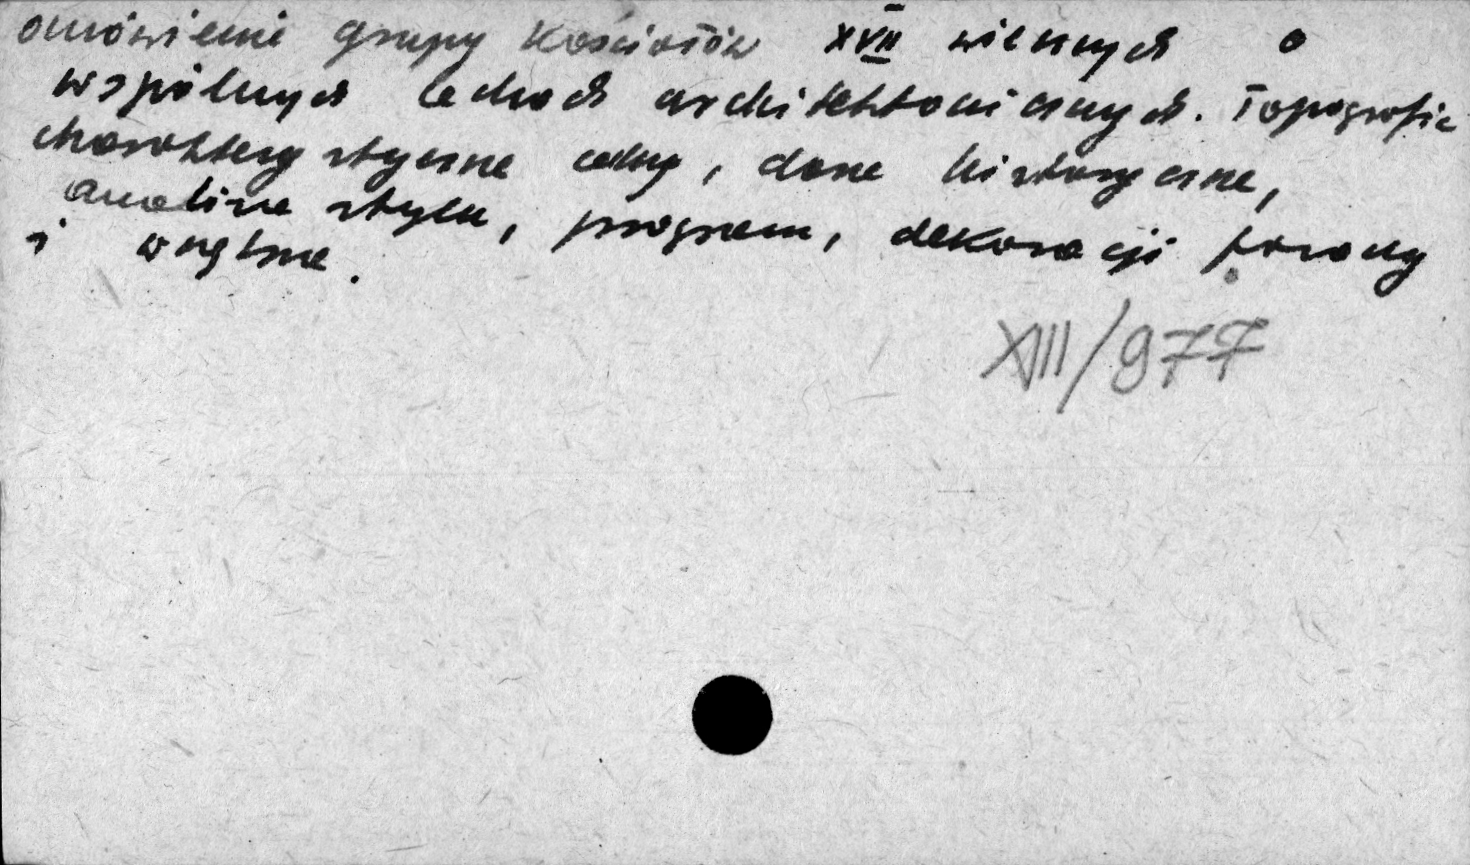 omówienie grupy kościołów XVII wiecznych o
wspólnych cechach architektonicznych. Topografia
charakterystyczne cechy, dane historyczne,
analiza stylu, program, dekoracji fasady
i wnętrza.
XIII/977